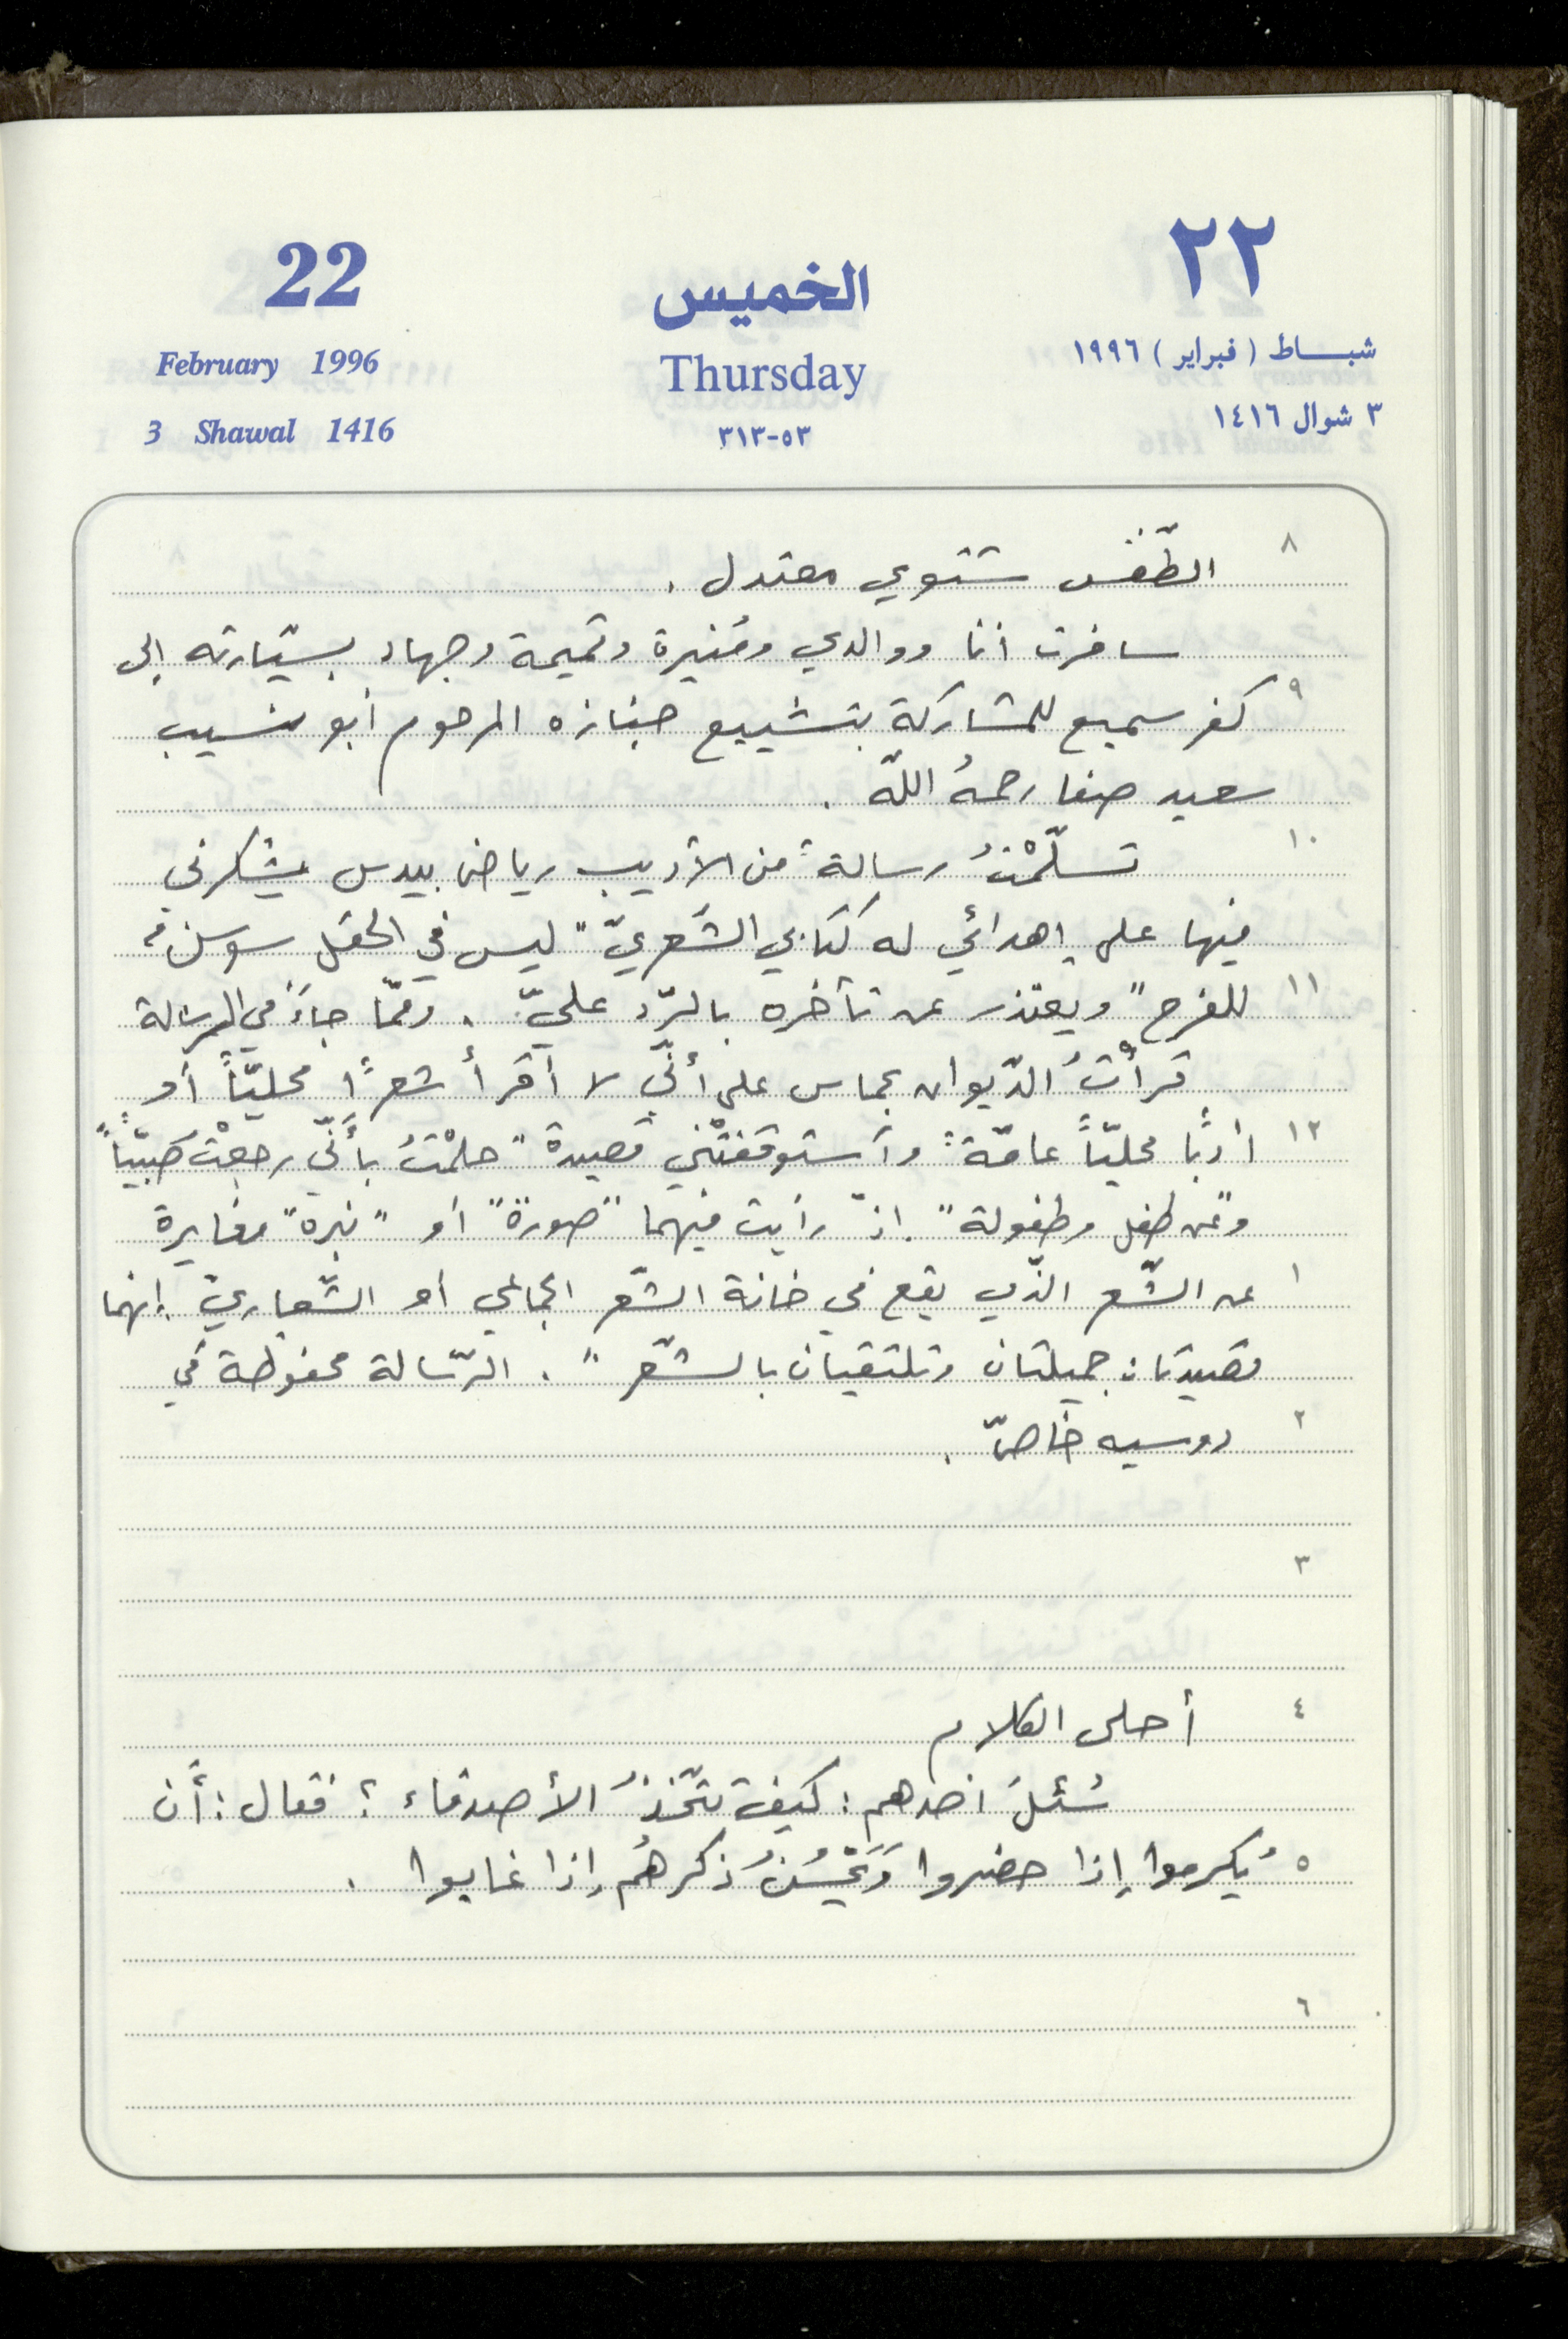 ٢٢
22
الخميس
شباط (فبراير) ١٩٩٦
February 1996
Thursday
٣ شوال ١٤١٦
3 Shawal 1416
٥٣-٣١٣
٨
الطّقس شتوي معتدل .
سافرت أنا ووالدي ومُنيرة وتميمة وجهاد بسيّارته إلى
٩ كفر سميع للمشاركة بتشييع جنازه المرحوم أبو نسيب
سعيد صفا رحمهُ اللّه .
١٠ تسلّمْتُ رسالةً من الأديب رياض بيدس يشكرني
فيها على إهدائي له كتابي الشعريّ "ليس في الحقل سوسنة
١١ للفرح" ويعتذر عن تأخره بالرّد عليّ . وممّا جاءَ في الرسالة
قرأْتُ الدّيوان بحماس على أنّي لا أقرأ شعرًا محليّاً أو
١٢ أدبًا محليّاً عامّةً وٱستوقفتْني قصيدة "حلمْتُ بأَنّي رجعْت صَبيّاً"
و"عن طفل وطفولة" . إذ رأيت فيهما "صورة" أو "نبره" مغايرة
١ عن الشّعر الذّي يقع في خانة الشّعر الجماعي أو الشّعاريّ . إنهما
قصيدتان جميلتان وتلتقيان بالشّعر" . الرّسالة محفوظة في
٢ دوسيه خاصّ .
٣
٤ أحلى الكلام
سُئلَ احدهم : كيف تتّخذُ الأصدقاء ؟ فقال : أَن
٥ يُكرموا إذا حضروا وَيَحْسُنُ ذكرهُم إذا غابوا .
٦